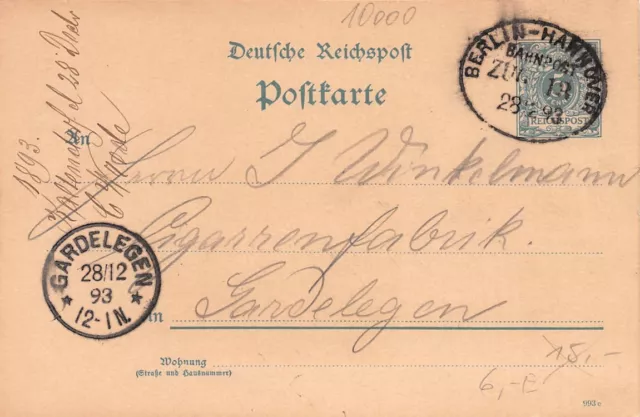 10000
Deutsche Reichspost
Postkarte
BERLIN-HANNOVER
BAHNPOST
ZUG 13
28 12 93
REICHSPOST
1893.
An
Herrn J Winkelmann
Cigarrenfabrik.
in Gardelegen
GARDELEGEN
28/12
93
12-1N.
Wohnung
(Straße und Hausnummer)
15,-
6,-E
993 c